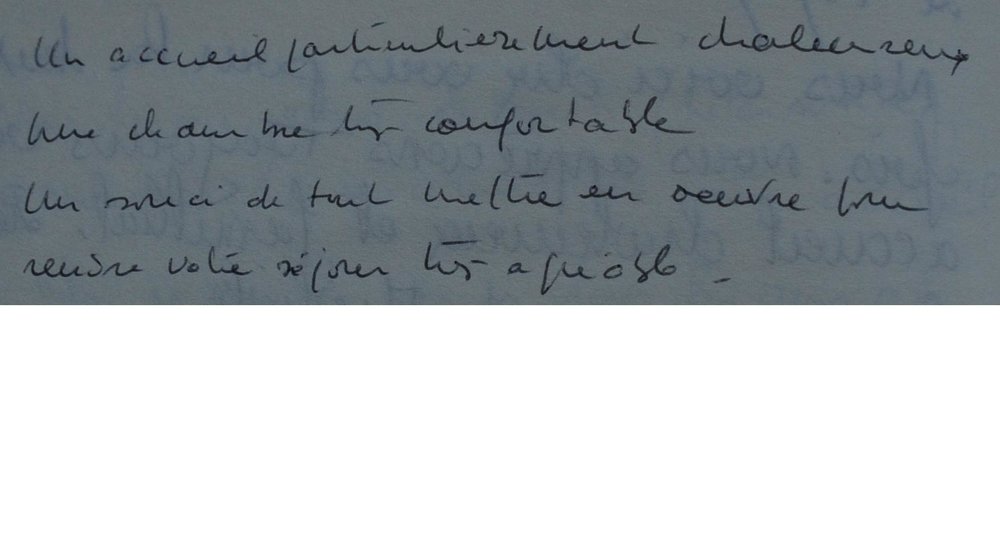 Un accueil particulièrement chaleureux
Une chambre très confortable
Un souci de tout mettre en oeuvre pour
rendre votre séjour très agréable.